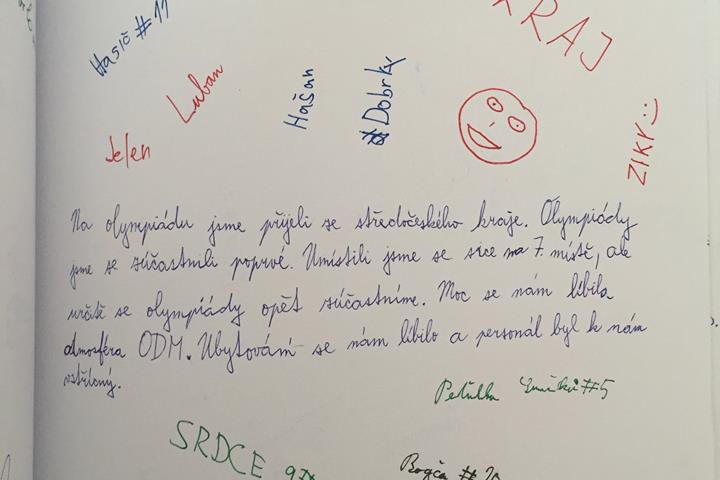 KRAJ
Hasič #11
Luban
Hašan
Dobrky
Jelen
ZIKY :)
Na olympiádu jsme přijeli se středočeského kraje. Olympiády
jsme se zúčastnili poprvé. Umístili jsme se sice na 7. místě, ale
určitě se olympiády opět zúčastníme. Moc se nám líbila
atmosféra ODM. Ubytování se nám líbilo a personál byl k nám
vstřícný.
#5
SRDCE
Bogča #20